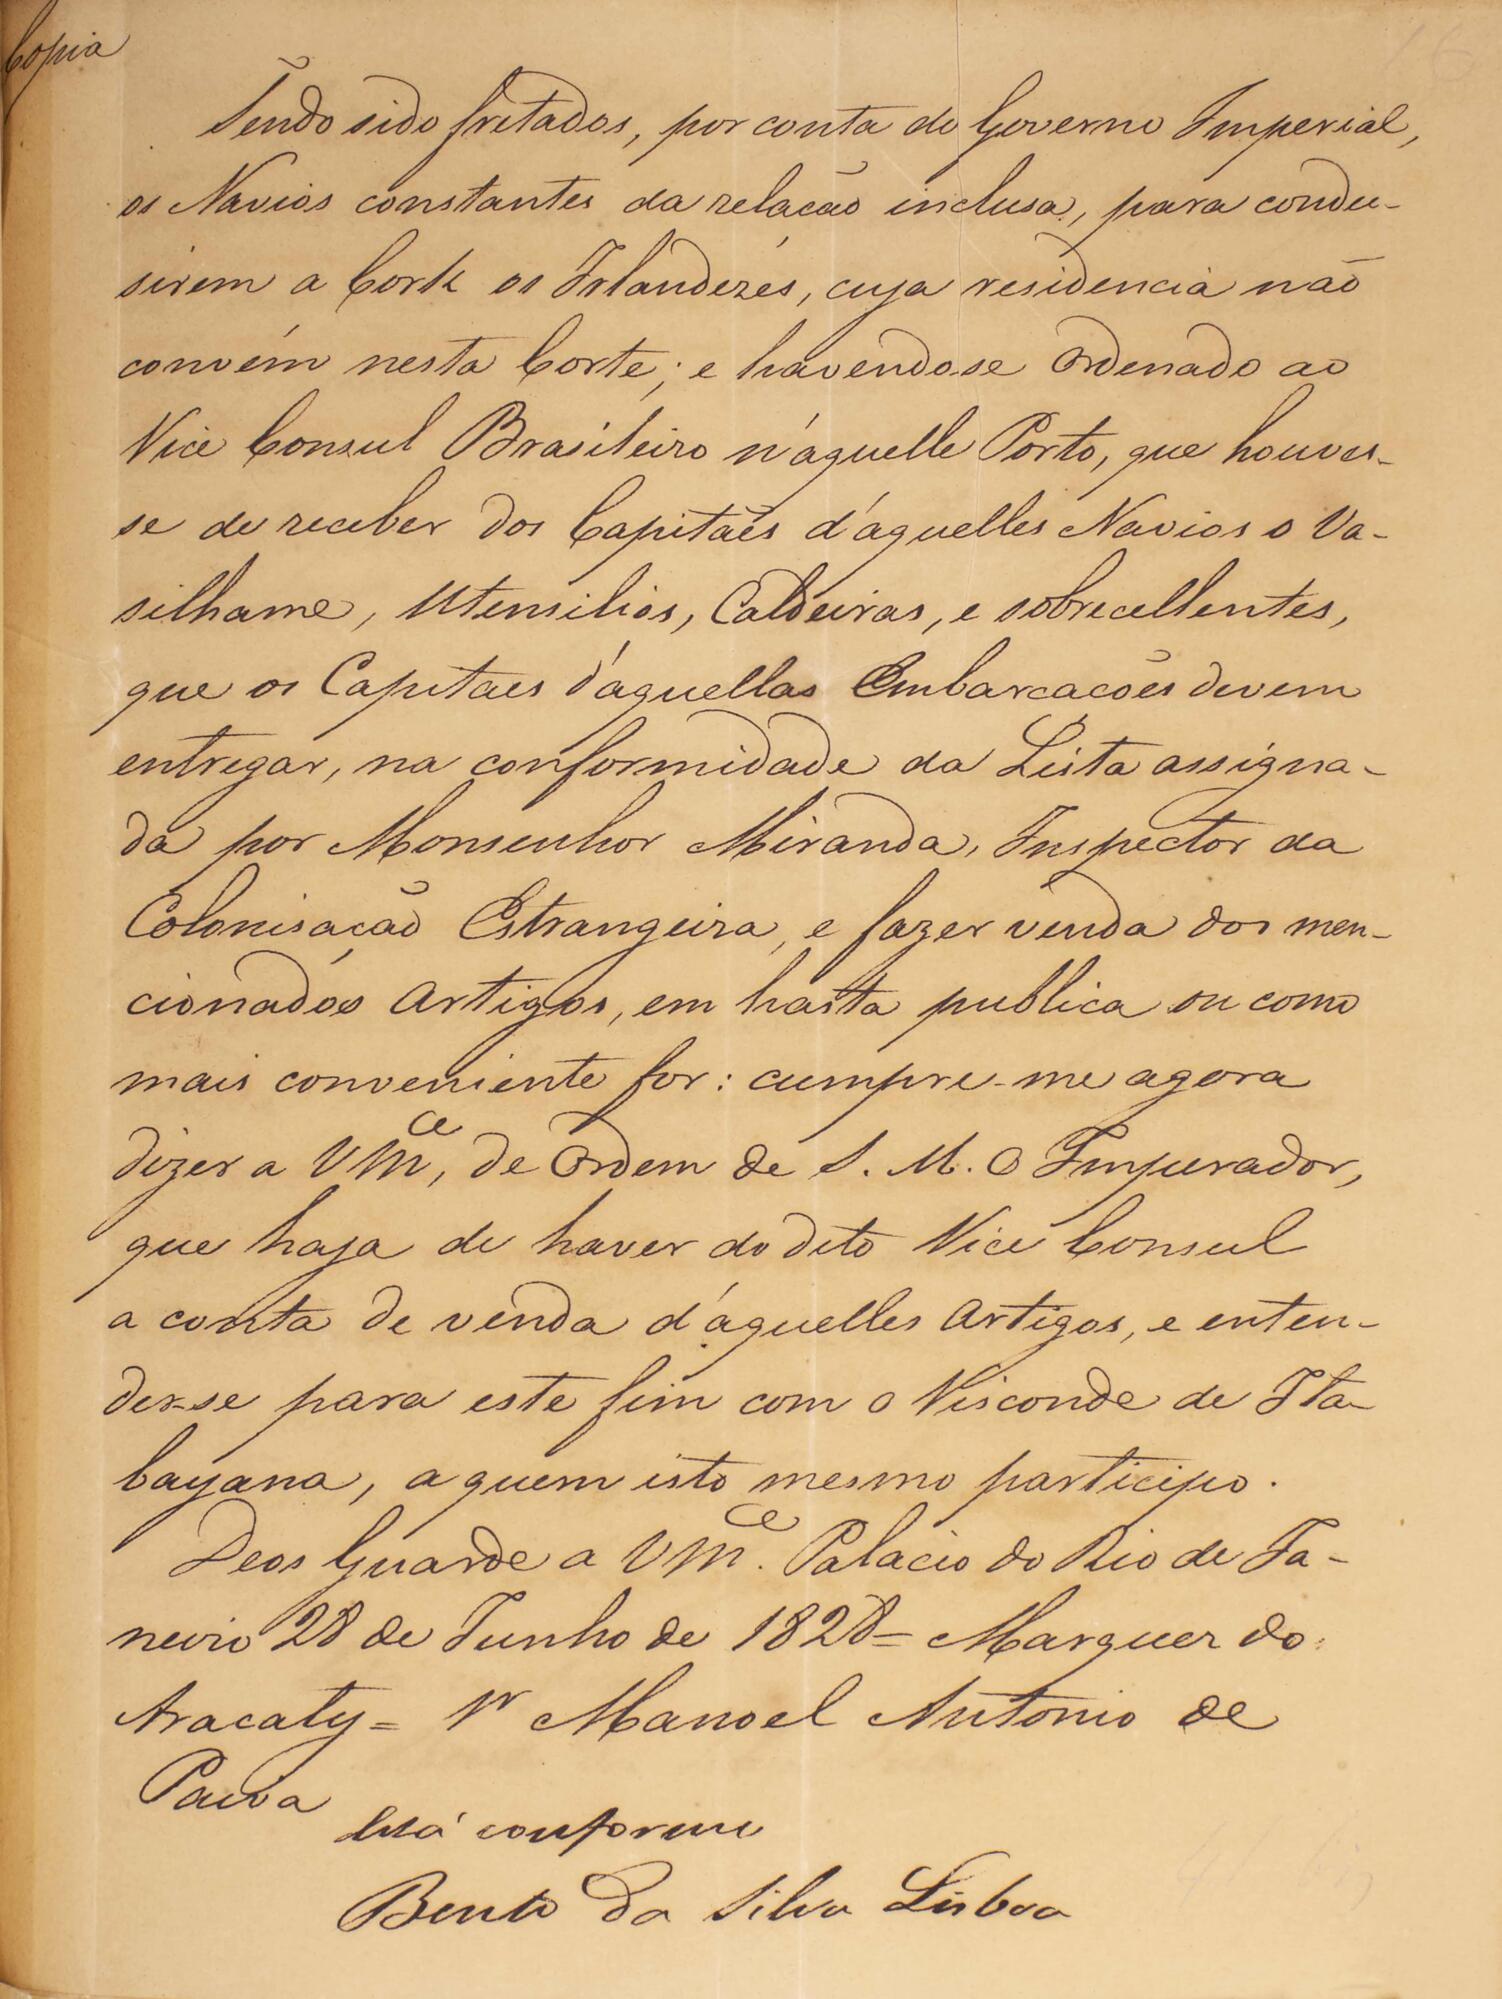 Copia
Tendo sido fretados, por conta do Governo Imperial,
os Navios constantes da relacão inclusa, para condu-
sirem a Cork os Irlandezes, cuja residencia não
convém nesta Corte; e havendo-se ordenado ao
Vice Consul Brasileiro n'aquelle Porto, que houves-
se de receber dos Capitães d'aquelles Navios o Va-
silhame, Utensilios, Caldeiras, e sobrecellentes,
que os Capitaes d'aquellas Embarcacões devem
entregar, na conformidade da Lista assigna-
da por Monsenhor Miranda, Inspector da
Colonisacão Estrangeira, e fazer venda dos men-
cionados Artigos, em hasta publica ou como
mais conveniente for: cumpre-me agora
dizer a VMce, de Ordem de S. M. O Imperador,
que haja de haver do dito Vice Consul
a conta de venda d'aquelles Artigos, e enten-
der-se para este fim com o Visconde de Ita-
bayana, a quem isto mesmo participo.
Deos Guarde a VMce. Palacio do Rio de Ja-
neiro 28 de Junho de 1828 = Marquez do
Aracaty = Sr Manoel Antonio de
Paiva
Está conforme
Bento da Silva Lisboa